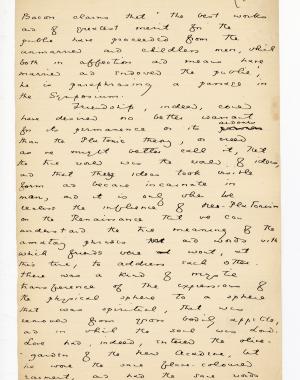 Bacon claims that 'the best works
and of greatest merit for the
public have proceeded from the
unmarried and childless men, which
both in affection and means have
married and endowed the public,'
he is paraphrasing a passage in
the Symposium.
Friendship, indeed, could
have desired no better warrant
for its permanence or its ardours
than the Platonic theory, or creed
as we might better call it, that
the true world was the world of ideas,
and that these ideas took visible
form and became incarnate in
man, and it is only when we
realise the influence of Neo-Platonism
on the Renaissance that we can
understand the true meaning of the
amatory phrases and words with
which friends were wont, at
this time, to address each other.
There was a kind of mystic
transference of the expressions of
the physical sphere to a sphere
that was spiritual, that was
removed from gross bodily appetite,
and in which the soul was Lord.
Love had, indeed, entered the olive-
garden of the new Academe, but
he wore the same flame-coloured
raiment, and had the same words